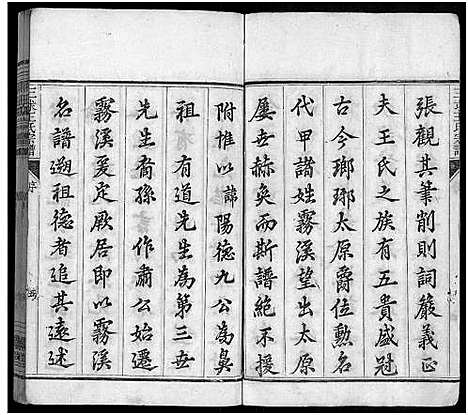 張觀其筆削則詞嚴義正
夫王氏之族有五貴盛冠
古今瑯琊太原爵位勲名
代甲諸姓霧溪望出太原
屢世赫奐而斯譜絕不援
附惟以諱陽德九公為鼻
祖有道先生為第三世
先生裔孫作肅公始遷
霧溪爰定厥居即以霧溪
名譜遡祖德者追其遠述
王氏宗譜
序